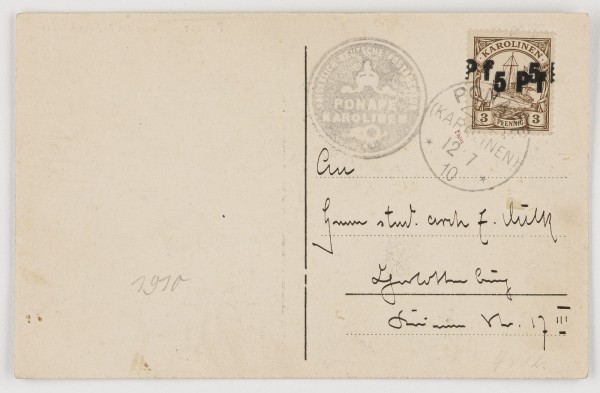 KAISERLICH DEUTSCHE POSTAGENTUR
PONAPE
KAROLINEN
KAROLINEN
Pf 5
5 Pf
3 PFENNIG 3
PONAPE
(KAROLINEN)
12 7
10
An
Herrn stud. arch E.
Charlottenburg
Str. 17 III
1910